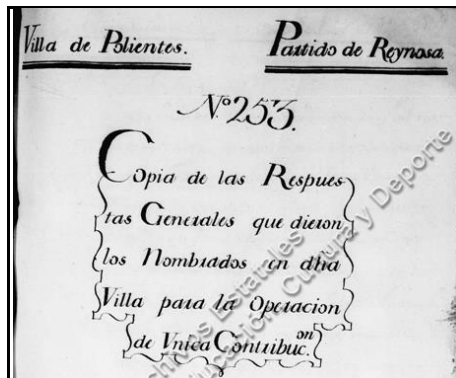 Villa de Polientes.
Partido de Reynosa.
N.º 253.
Copia de las Respues
tas Generales que dieron
los Nombrados en dha
Villa para la Operacion
de Vnica Contribuc.on
Archivos Estatales
Educación, Cultura y Deporte